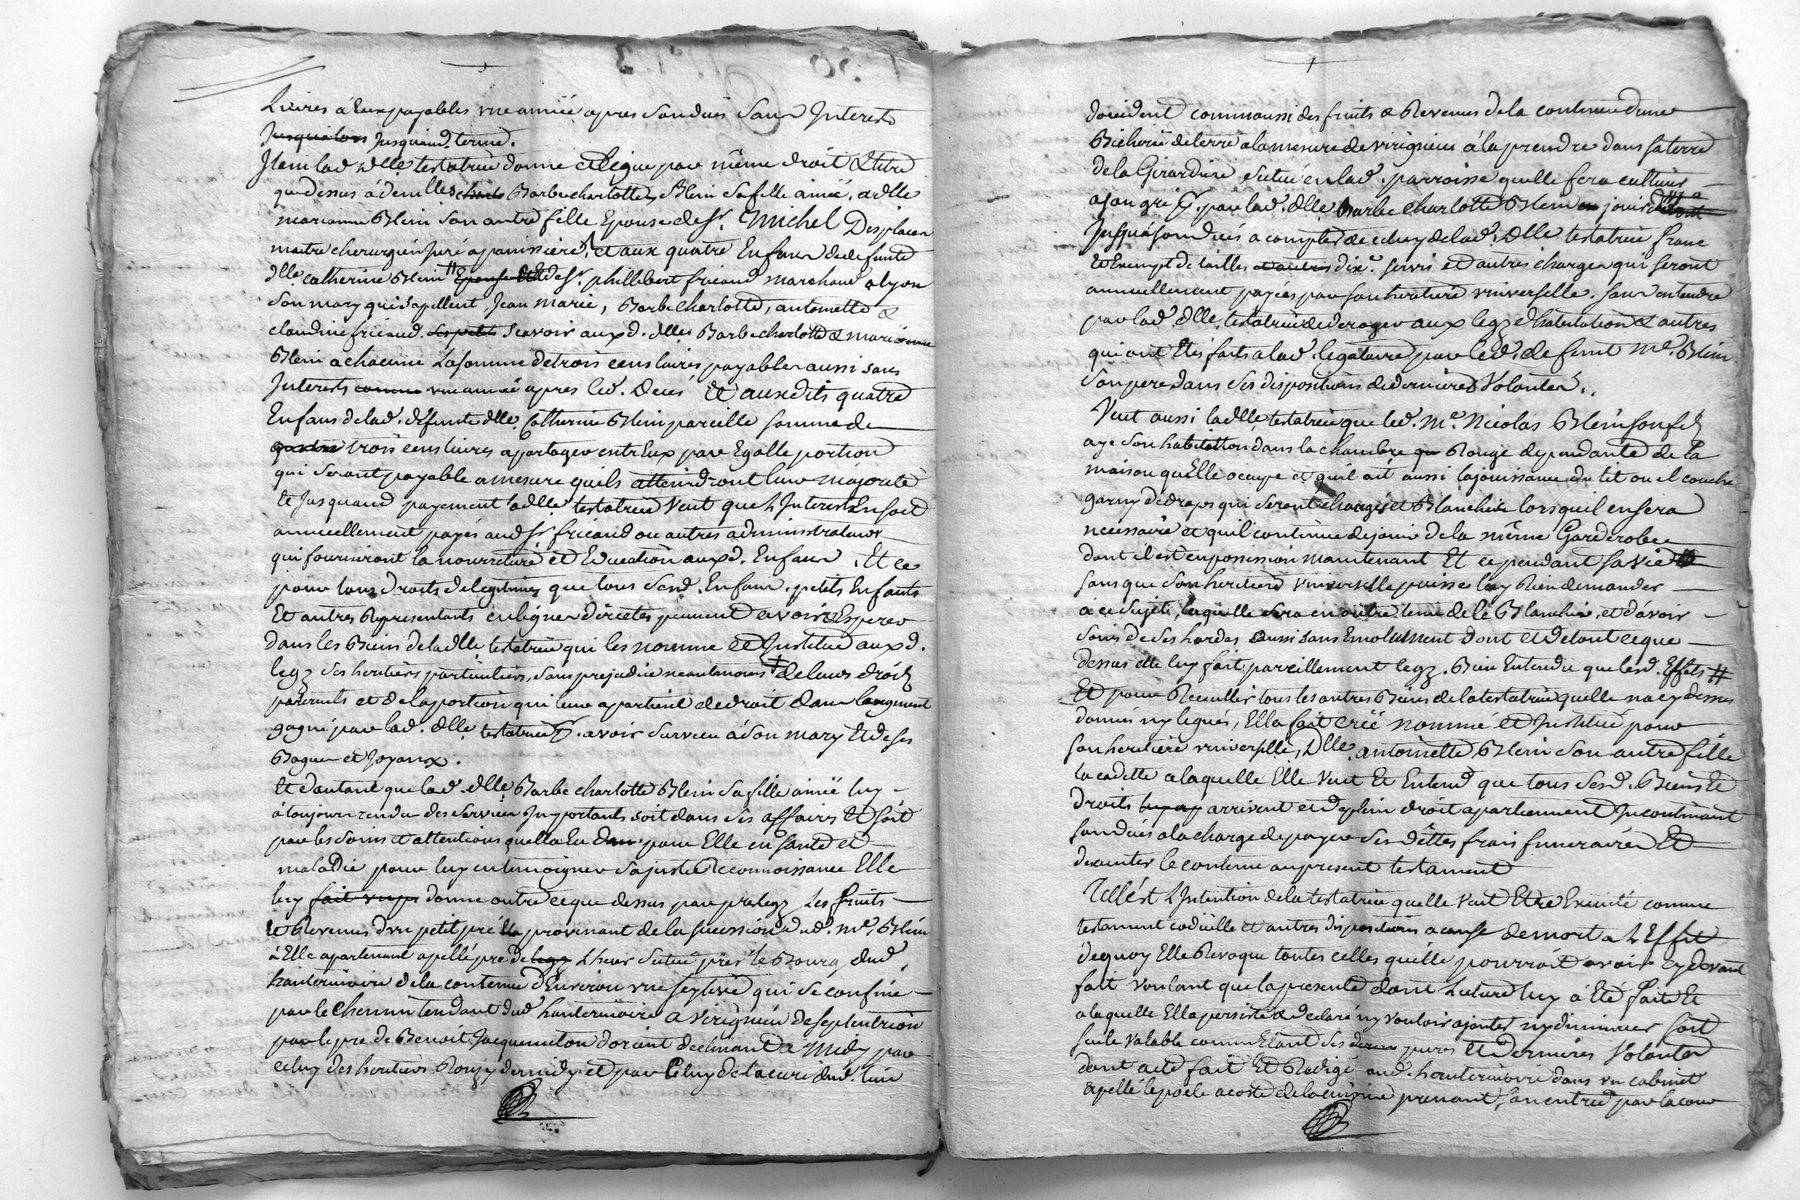 Livres à Eux payables une année apres son deces sans Interests
Jusqualors Jusquaud. terme.
Item lad. dlle. testatrice donne et legue par même droit & titre
que dessus a demlle. Barbe charlotte Blein sa fille ainée, a dlle
marianne Blein son autre fille Epouse de Sr. Michel Desplaces
maitre chirurgien Juré a panissiere, et aux quatre Enfans de defunte
dlle. catherine Blein Epouse de Sr. phillibert fricaud marchand a lyon
son mary qui sapellent Jean marie, Barbe charlotte, antoinette &
claudine fricaud. Scavoir auxd. dlles. Barbe charlotte & marianne
Blein a chacune La somme de trois cens livres payables aussi sans
Interests comme une année apres led. deces Et auxdits quatre
Enfans de lad. defunte dlle. Catherine Blein pareille somme de
quatre trois cens livres a partager entr'Eux par Egalle portion
qui seront payable a mesure quils atteindront leur majorité
et Jusquaud payement ladlle testatrice Veut que L'Interest En soit
annuellement payés aud Sr. fricaud ou autres administrateurs
qui fourniront la nourriture et Education auxd. Enfans. Et ce
pour tous droits de legitimes que tous sesd. Enfans, petits Enfants
Et autres Representants en ligne directe peuvent avoir & Esperer
dans les Biens de ladlle testatrice qui les nomme et Institue auxd.
legz ses heritiers particuliers, sans prejudice neantmoins de leurs droits
paternels et de la portion qui leur apartient de droit dans laugment
gagné par lad. dlle. testatrice p. avoir survecu à son mary Et de ses
Bagues et Joyaux.
Et d'autant que lad. dlle Barbe charlotte Blein sa fille ainée luy
à toujours rendu des services Importants soit dans ses affaires Et soit
par les soins et attentions quelle a Eu pour Elle en santé et
maladie pour luy en temoigner sa juste Reconnoissance Elle
luy donne outre ce que dessus par prelegz Les fruits
et Revenus d'un petit pré provenant de la succession dud. Me. Blein
à Elle apartenant apellé pré de situé près le Bourg dud.
hauterivoire de la contenue d'Environ une seytivée qui se confine
par le chemin tendant dud. hauterivoire a virigneu de septentrion
par le pré de Benoit Jacquemeton d'orient declinant à midy par
celuy des heritiers de midy et par Celuy de la cure dud. lieu
d'occident comm'aussi des fruits & Revenus de la contenue d'une
Bicherée de terre a la mesure de virigneu à la prendre dans sa terre
de la Girardiere située en lad. parroisse quelle fera cultiver
a son gré p. par lad. dlle. Barbe charlotte Blein en jouir
Jusqu'à son deces a compter de celuy de lad. dlle testatrice franc
Et Exempt de tailles dixe. servis et autres charges qui seront
annuellement payées par son heritiere universelle. sans entendre
par lad. dlle. testatrice deroger aux legz d'habitation & autres
qui ont Etés faits a lad. legataire par led. defunt Me. Blein
son pere dans ses dispositions de dernieres Volontés.
Veut aussi ladlle testatrice que led. Me. Nicolas Blein son fils
aye son habitation dans la chambre Rouge dependante de la
maison qu'Elle occupe et qu'il ait aussi la jouissance du lit ou il couche
garny de draps qui seront changés et Blanchis lorsquil en sera
necessaire et quil continue de jouir de la même Garderobe
dont il est en possession maintenant Et ce pendant sa vie
sans que son heritiere universelle puisse luy Rien demander
à ce sujet, laquelle sera en outre tenue de le Blanchir, et d'avoir
soins de ses hardes aussi sans Emolument dont et de tout ce que
dessus elle luy fait pareillement legz. Bien Entendu que lesd. Effets #
Et pour Receuillir tous les autres Biens de la testatrice quelle n'a cy dessus
donnés ny legués, Ell'a fait créé nommé et Institué pour
son heritiere universelle, Dlle. antoinette Blein son autre fille
la cadette a laquelle Elle Veut Et Entend que tous sesd. Biens Et
droits arrivent et de plein droit apartiennent Incontinant
son deces a la charge de payer ses dettes frais funeraires Et
d'executer le contenu au present testament
Tell'est L'Intention de la testatrice quelle Veut Etre Executé comme
testament codicille et autres dispositions a cause de mort a L'Effet
de quoy Elle Revoque toutes celles quelle pourroit avoir cy devant
fait voulant que la presente dont Lecture luy à Eté fait Et
a laquelle Ell'a persisté & declaré ny vouloir ajouter ny diminuer soit
seule valable comm'Etant ses pures Et dernieres Volontés
dont acte fait Et Redigé aud. hauterivoire dans un cabinet
apellé le poele a costé de la cuisine prenant son entrée par la cour